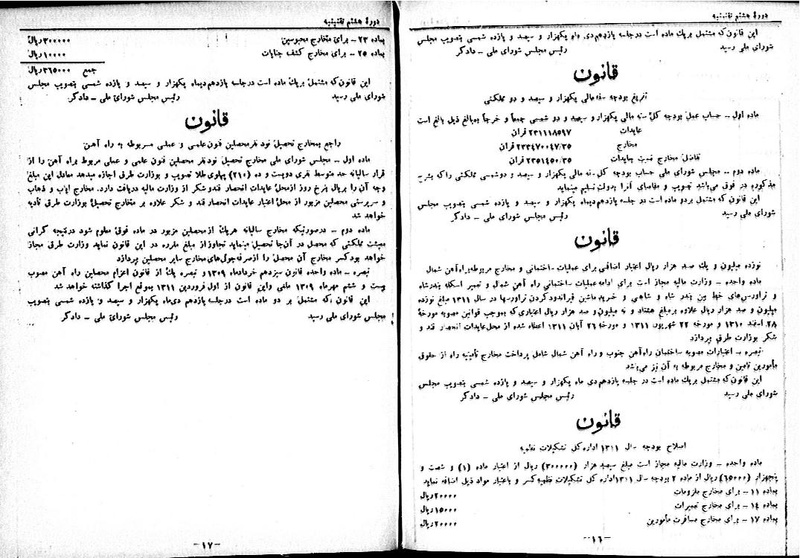 دورهٔ هشتم تقنینیه
این قانون که مشتمل بریک ماده است درجلسه یازدهم دی ماه یکهزار و سیصد و یازده شمسی بتصویب مجلس
شورای ملی رسید
رئیس مجلس شورای ملی ـ دادگر
قانون
تفریغ بودجه سنه مالی یکهزار و سیصد و دو مملکتی
ماده اول ـ حساب عمل بودجه کل سنه مالی یکهزار و سیصد و دو شمسی جمعاً و خرجاً بمبالغ ذیل بالغ است
عایدات ۲۳۱۱۱۸۵۹۷ قران
مخارج ۲۳۴۷۰۰۹۷/۳۵ قران
تفاضل مخارج نسبت بعایدات ۲۳۵۱۴۵۰/۳۵ قران
ماده دوم ـ مجلس شورای ملی حساب بودجه کل سنه مالی یکهزار و سیصد و دوشمسی مملکتی راکه بشرح
مذکوره در فوق می‌باشد تصویب و مفاصای آنرا بدولت تسلیم مینماید
این قانون که مشتمل بردو ماده است در جلسه یازدهم دیماه یکهزار و سیصد و یازده شمسی بتصویب مجلس
شورای ملی رسید
رئیس مجلس شورای ملی ـ دادگر
قانون
نوزده میلیون و یک صد هزار ریال اعتبار اضافی برای عملیات ساختمانی و مخارج مربوطه براه‌آهن شمال
ماده واحده ـ وزارت مالیه مجاز است برای ادامه عملیات ساختمانی راه آهن شمال و تعمیر اسکله بندرشاه
و تراورس‌های خط بین بندر شاه و شاهی و خرید ماشین قیراندودکردن تراورسها در سال ۱۳۱۱ مبلغ نوزده
میلیون و صد هزار ریال علاوه بر مبلغ هشتاد و نه میلیون و صد هزار ریال اعتباری‌که بموجب قوانین مصوبه مورخهٔ
۲۸ اسفند ۱۳۱۰ و مورخه ۲۲ شهریور ۱۳۱۱ و مورخه ۲۶ آبان ۱۳۱۱ اعطاء شده از محل عایدات انحصار قند و
شکر بوزارت طرق بپردازد
تبصره ـ اعتبارات مصوبه ساختمان راه‌آهن جنوب و راه آهن شمال شامل پرداخت مخارج تأمینیه راه از حقوق
مأمورین تأمین و مخارج مربوطه به آن نیز می‌باشد
این قانون که مشتمل بریک ماده است در جلسه یازدهم دی ماه یکهزار و سیصد و یازده شمسی بتصویب مجلس
شورای ملی رسید
رئیس مجلس شورای ملی ـ دادگر
قانون
اصلاح بودجه سال ۱۳۱۱ اداره کل تشکیلات نظمیه
ماده واحده ـ وزارت مالیه مجاز است مبلغ سیصد هزار (۳۰۰۰۰۰) ریال از اعتبار ماده (۱) و شصت و
پنجهزار (۶۵۰۰۰) ریال از ماده ۲ بودجه سال ۱۳۱۱ اداره کل تشکیلات نظمیه کسر و باعتبار مواد ذیل اضافه نماید
بماده ۱۱ ـ برای مخارج ملزومات ۲۰۰۰۰ریال
بماده ۱۴ ـ برای مخارج تعمیرات ۱۵۰۰۰ریال
بماده ۱۷ ـ برای مخارج مسافرت مأمورین ۲۰۰۰۰ریال
ـ ۱۶ ـ
دورهٔ هشتم تقنینیه
بماده ۲۳ ـ برای مخارج محبوسین ۳۰۰۰۰۰ریال
بماده ۲۵ ـ برای مخارج کشف جنایات ۱۰۰۰۰ریال
جمع ۳۶۵۰۰۰ریال
این قانون‌که مشتمل بریک ماده است درجلسه یازدهم دیماه یکهزار و سیصد و یازده شمسی بتصویب مجلس
شورای ملی رسید
رئیس مجلس شورای ملی ـ دادگر
قانون
راجع بمخارج تحصیل نود نفر محصلین فنون علمی و عملی مربوطه به راه آهن
ماده اول ـ مجلس شورای ملی مخارج تحصیل نود نفر محصلین فنون علمی و عملی مربوط براه آهن را از
قرار سالیانه حد متوسط نفری دویست و ده (۲۱۰) پهلوی طلا تصویب و بوزارت طرق اجازه میدهد معادل این مبلغ
وجه آن را بریال بنرخ روز ازمحل عایدات انحصار قندو شکر از وزارت مالیه دریافت دارد. مخارج ایاب و ذهاب
و سرپرستی محصلین مزبور از محل اعتبار عایدات انحصار قند و شکر علاوه بر مخارج تحصیل بوزارت طرق تأدیه
خواهد شد
ماده دوم ـ درصورتیکه مخارج سالیانه هریک ازمحصلین مزبور در ماده فوق معلوم شود درنتیجه گرانی
معیشت مملکتی که محصل در آن‌جا تحصیل مینماید تجاوز از مبلغ مقرره در این قانون نماید وزارت طرق مجاز
خواهد بودکسر مخارج آن محصل را ازصرفه‌جوئی‌های مخارج سایر محصلین بپردازد
تبصره ـ ماده واحده قانون سیزدهم خردادماه ۱۳۰۹ و تبصره یک از قانون اعزام محصلین راه آهن مصوب
بیست و هشتم مهرماه ۱۳۰۹ ملغی واین قانون از اول فروردین ۱۳۱۱ بموقع اجرا گذاشته خواهد شد
این قانون که مشتمل بر دو ماده است درجلسه یازدهم دی‌ماه یکهزار و سیصد و یازده شمسی بتصویب
مجلس شورای ملی رسید
رئیس مجلس شورای ملی ـ دادگر
ـ ۱۷ ـ